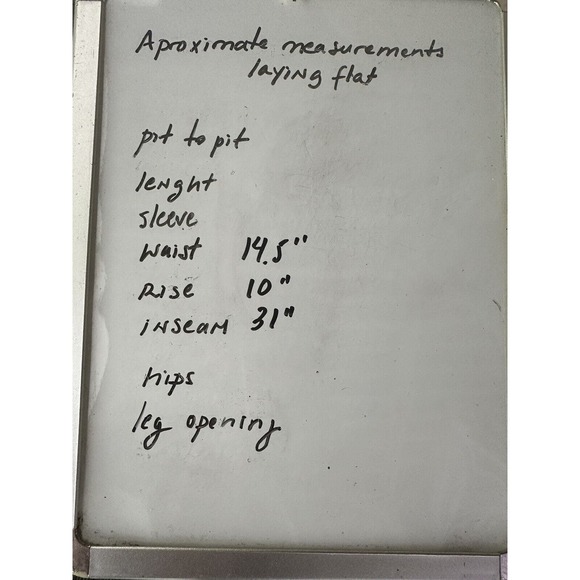 Aproximate measurements
laying flat
pit to pit
lenght
sleeve
waist 14.5"
Rise 10"
inseam 31"
hips
leg opening